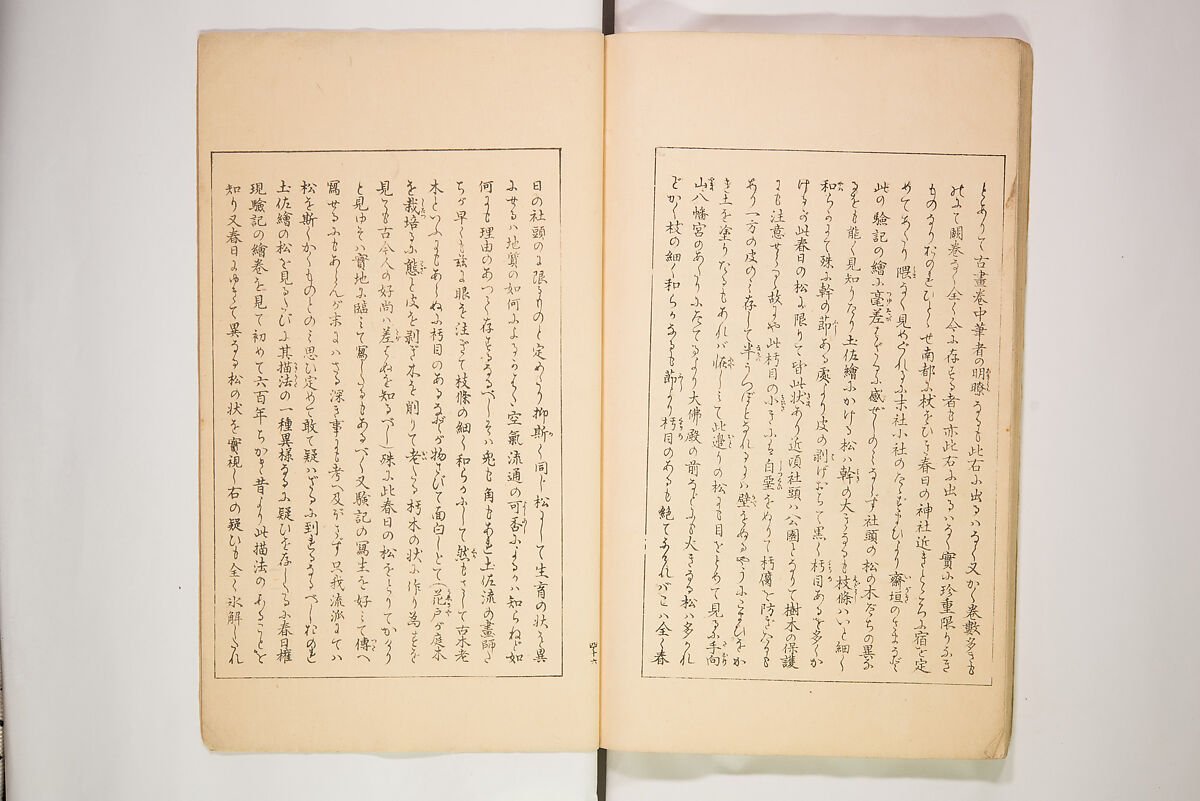 とありて古畫巻中筆者の明瞭なるも此右に出るハなく又かく巻數多きも
のにて闕巻なく全く今に存する者も亦此右に出るハなく實に珍重限りなき
ものなりおのれひとゝせ南都に杖をひき春日の神社近きところに宿を定
めてあたり隈なく見めぐれるに末社小社のたゝずまひより齋垣のさままで
此の驗記の繪に毫差はざるに感ぜしのみならず社頭の松の木だちの異な
るをも能く見知りたり土佐繪にかける松ハ幹の大きなるも枝條ハいと細く
和らかにて殊に幹の節ある處より皮の剥げおちて黒く朽目あるを多くか
けるが此春日の松に限りて皆此状あり近頃社頭ハ公園となりて樹木の保護
にも注意せらるゝ故にや此朽目の小きにハ白堊をぬりて朽腐を防ぎたるも
あり一方の皮のミ存して半うつぼとなれるにハ壁をぬるやうにこまひをか
き土を塗りたるもあれバ恠しミて此邊りの松にも目をとめて見るに手向
山八幡宮のあたりにたてるより大佛殿の前なども大きなる松ハ多かれ
どかく枝の細く和らかなるも節より朽目のあるも絶てなけれバこハ全く春
日の社頭のに限るものと定めたり抑斯く同じ松にして生育の状を異
にせるハ地質の如何によるかはた空氣流通の可否によるかハ知らねど如
何にも理由のあつて存するなるべしそハ兎も角もあれ土佐流の畫師た
ちが早くも茲に眼を注ぎて枝條の細く和らかにして然もさして古木老
木といふにもあらぬに朽目のあるなどが物さびて面白しとて(花戸が庭木
を栽培るに態と皮を剥ぎ木を削りて老たる朽木の状に作り為すを
見ても古今人の好尚ハ差はぬを知るべし)殊に此春日の松をとりてかけり
と見ゆそハ實地に臨ミて寫したるもあるべく又驗記の寫生を好ミて傳へ
寫せるにもあらんが末にハさる深き事まで考へ及バざらず只我流派にてハ
松を斯くかくものとのミ思ひ定めて敢て疑ハざるに到れるなるべしおのれ
土佐繪の松を見るたびに其描法の一種異様なるに疑ひを存したるに春日權
現驗記の繪巻を見て初めて六百年ちかき昔より此描法のあることを
知り又春日にゆきて異なる松の状を實視し右の疑ひも全く氷解したれ
四十六